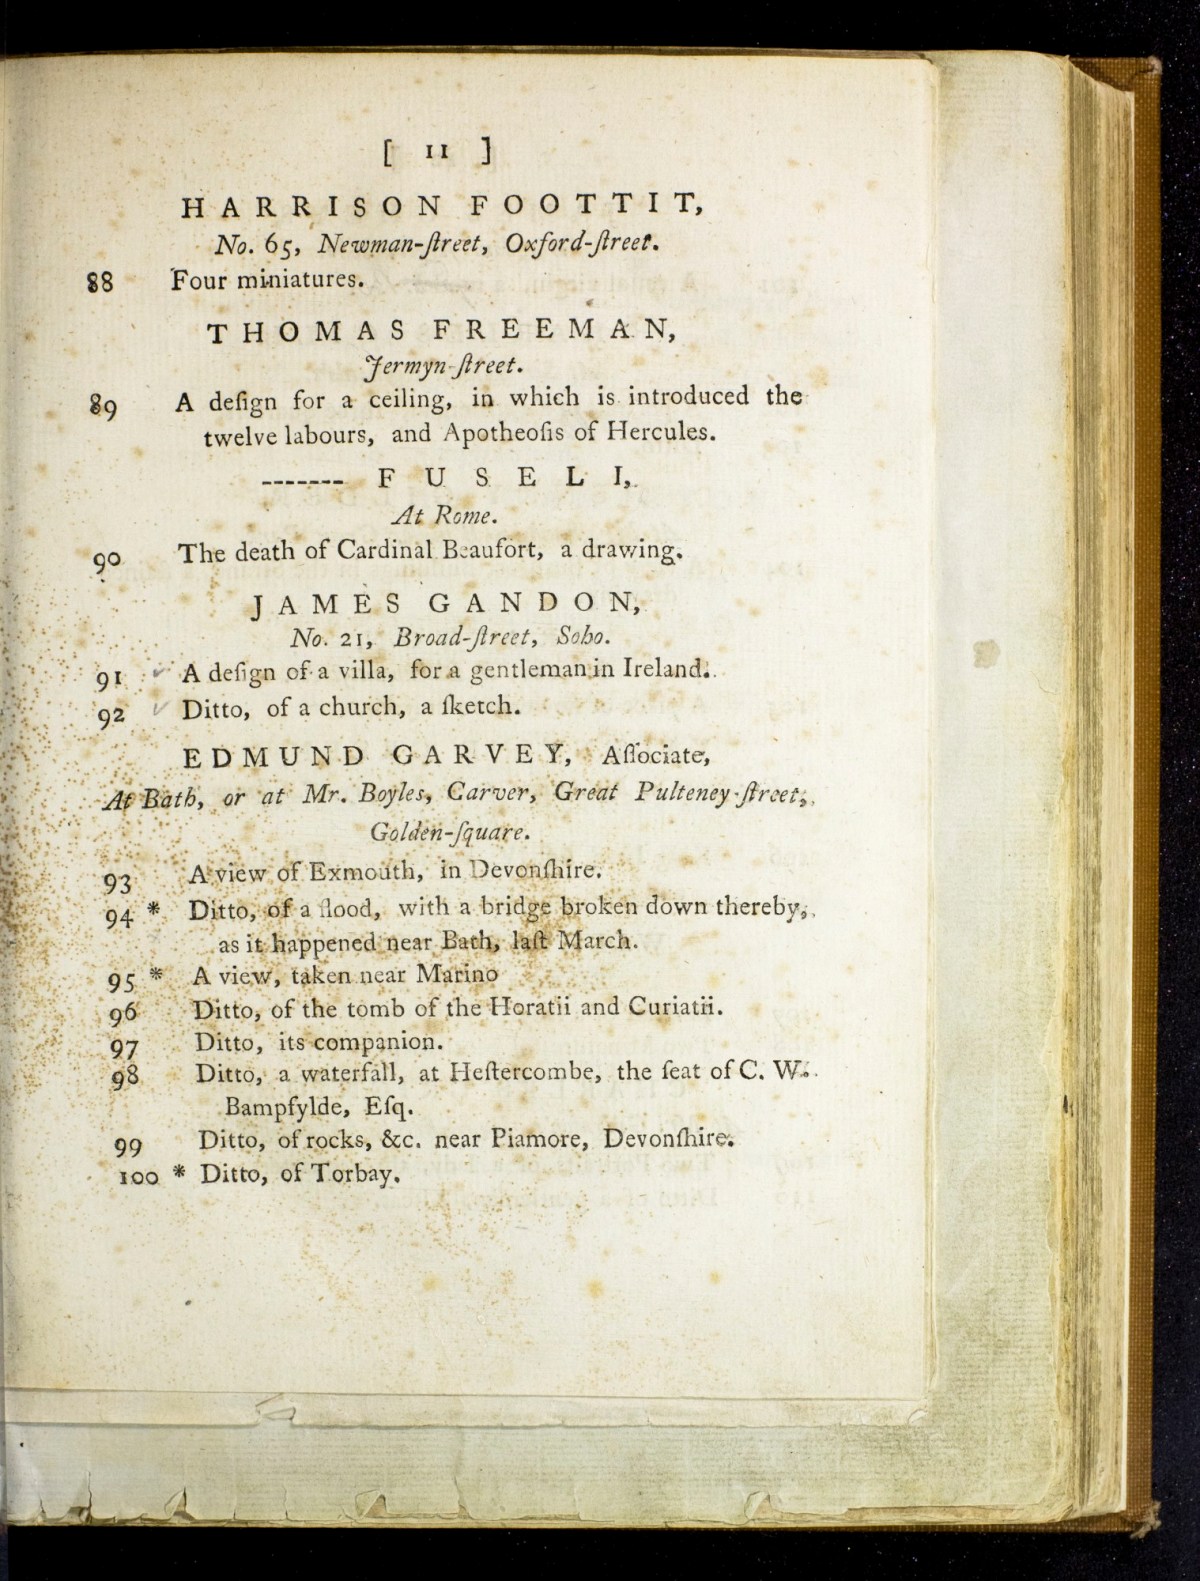 [ 11 ]
HARRISON FOOTTIT,
No. 65, Newman-ſtreet, Oxford-ſtreet.
88 Four miniatures.
THOMAS FREEMAN,
Jermyn-ſtreet.
89 A deſign for a ceiling, in which is introduced the
twelve labours, and Apotheoſis of Hercules.
------- FUSELI,
At Rome.
90 The death of Cardinal Beaufort, a drawing.
JAMES GANDON,
No. 21, Broad-ſtreet, Soho.
91 ✓ A deſign of a villa, for a gentleman in Ireland.
92 ✓ Ditto, of a church, a ſketch.
EDMUND GARVEY, Aſſociate,
At Bath, or at Mr. Boyles, Carver, Great Pulteney-ſtreet,
Golden-ſquare.
93 A view of Exmouth, in Devonſhire.
94 * Ditto, of a flood, with a bridge broken down thereby,
as it happened near Bath, laſt March.
95 * A view, taken near Marino
96 Ditto, of the tomb of the Horatii and Curiatii.
97 Ditto, its companion.
98 Ditto, a waterfall, at Heſtercombe, the ſeat of C. W.
Bampfylde, Eſq.
99 Ditto, of rocks, &c. near Piamore, Devonſhire.
100 * Ditto, of Torbay.